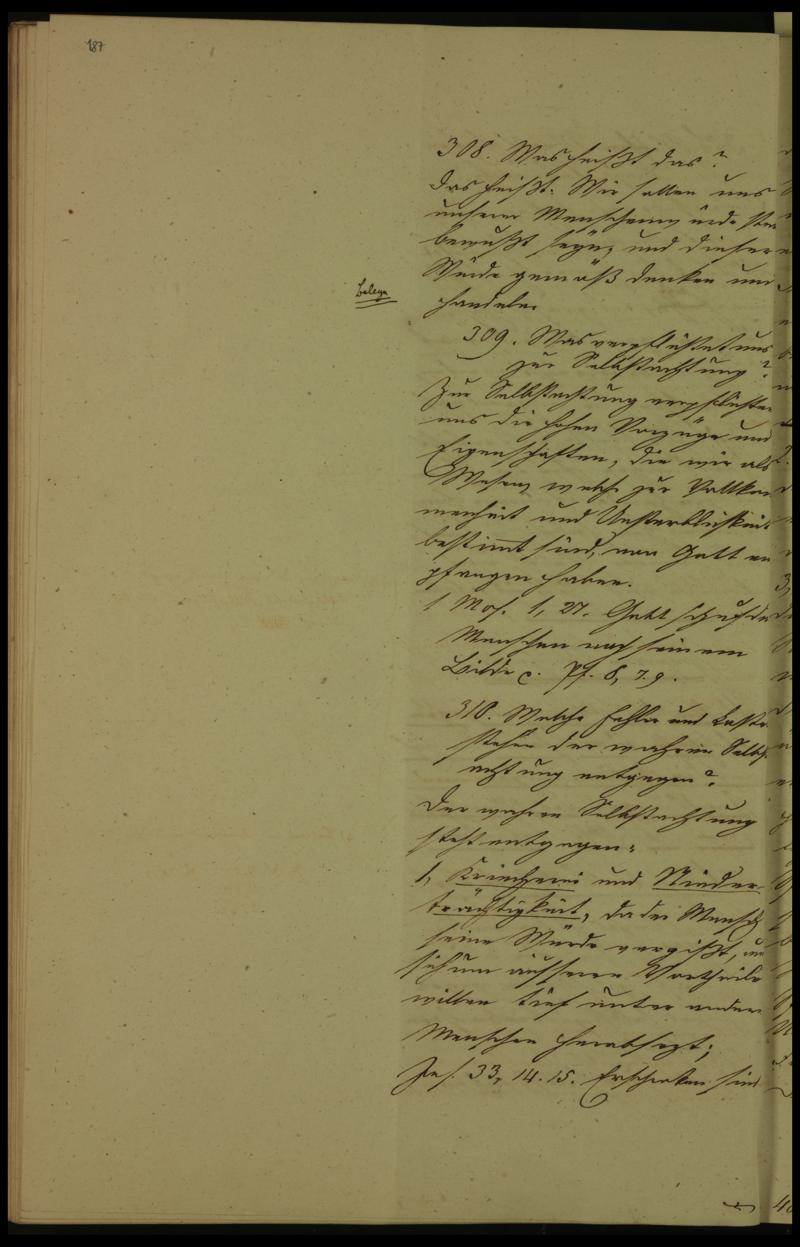 187
308. Was heißt das?
Das heißt: Wir sollen uns
unserer Menschenwürde stets
bewußt seyn, und dieser
Würde gemäß denken und
handeln.
Belege
309. Was verpflichtet uns
zur Selbstachtung?
Zur Selbstachtung verpflichten
uns die hohen Vorzüge und
Eigenschaften, die wir als
Wesen, welche zur Vollkom
menheit und Unsterblichkeit
bestimt sind, von Gott em
pfangen haben.
1 Mos. 1, 27. Gott schuf den
Menschen nach seinem
Bilde c. Ps. 8, 7. 9.
310. Welche Fehler und Laster
stehen der wahren Selbst
achtung entgegen?
Der wahren Selbstachtung
steht entgegen:
1, Kriecherei und Nieder
trächtigkeit, da der Mensch
seine Würde vergißt, und
sich um äussere Vortheile
willen tief unter andere
Menschen herabsezt;
Jes. 33, 14. 15. Erschroken sind